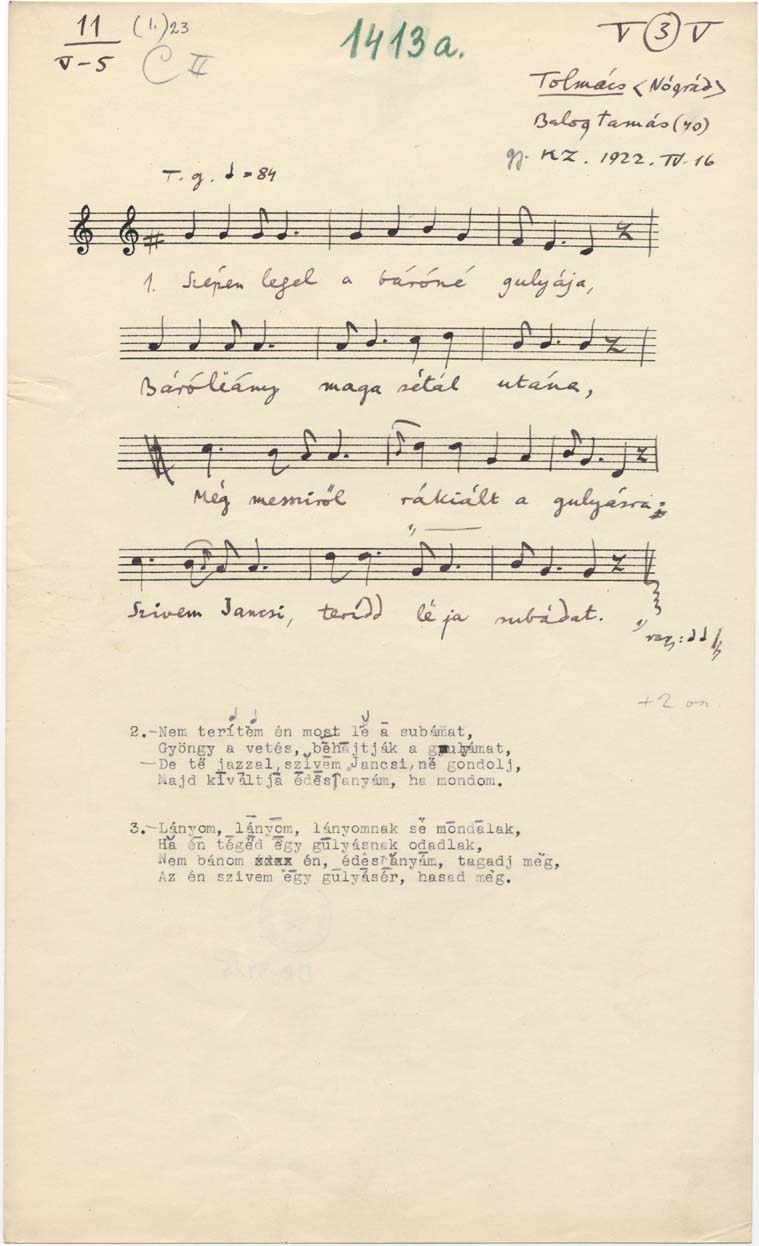 11 (1.) 23
V-5 C II
1413a.
V 3 V
Tolmács <Nógrád>
Balog Tamás (40)
gy. KZ. 1922. IV. 16
T. g. ♩ = 84
1. Szépen legel a báróné gulyája,
Báróliány maga sétál utána,
Még messziről rákiált a gulyásra:
1)
Szivem Jancsi, teridd lé ja subádat.
1) vagy: ♩♩
+2 on
2.-Nem terítëm én most lë a subámat,
Gyöngy a vetés, bëhajtják a gulyámat,
-De të jazzal, szívem Jancsi, në gondolj,
Majd kiváltja édësanyám, ha mondom.
3.-Lányom, lányom, lányomnak së mondalak,
Ha én tégëd ëgy gulyásnak odadlak,
Nem bánom én, édësanyám, tagadj mëg,
Az én szivem ëgy gulyásér, hasad mëg.